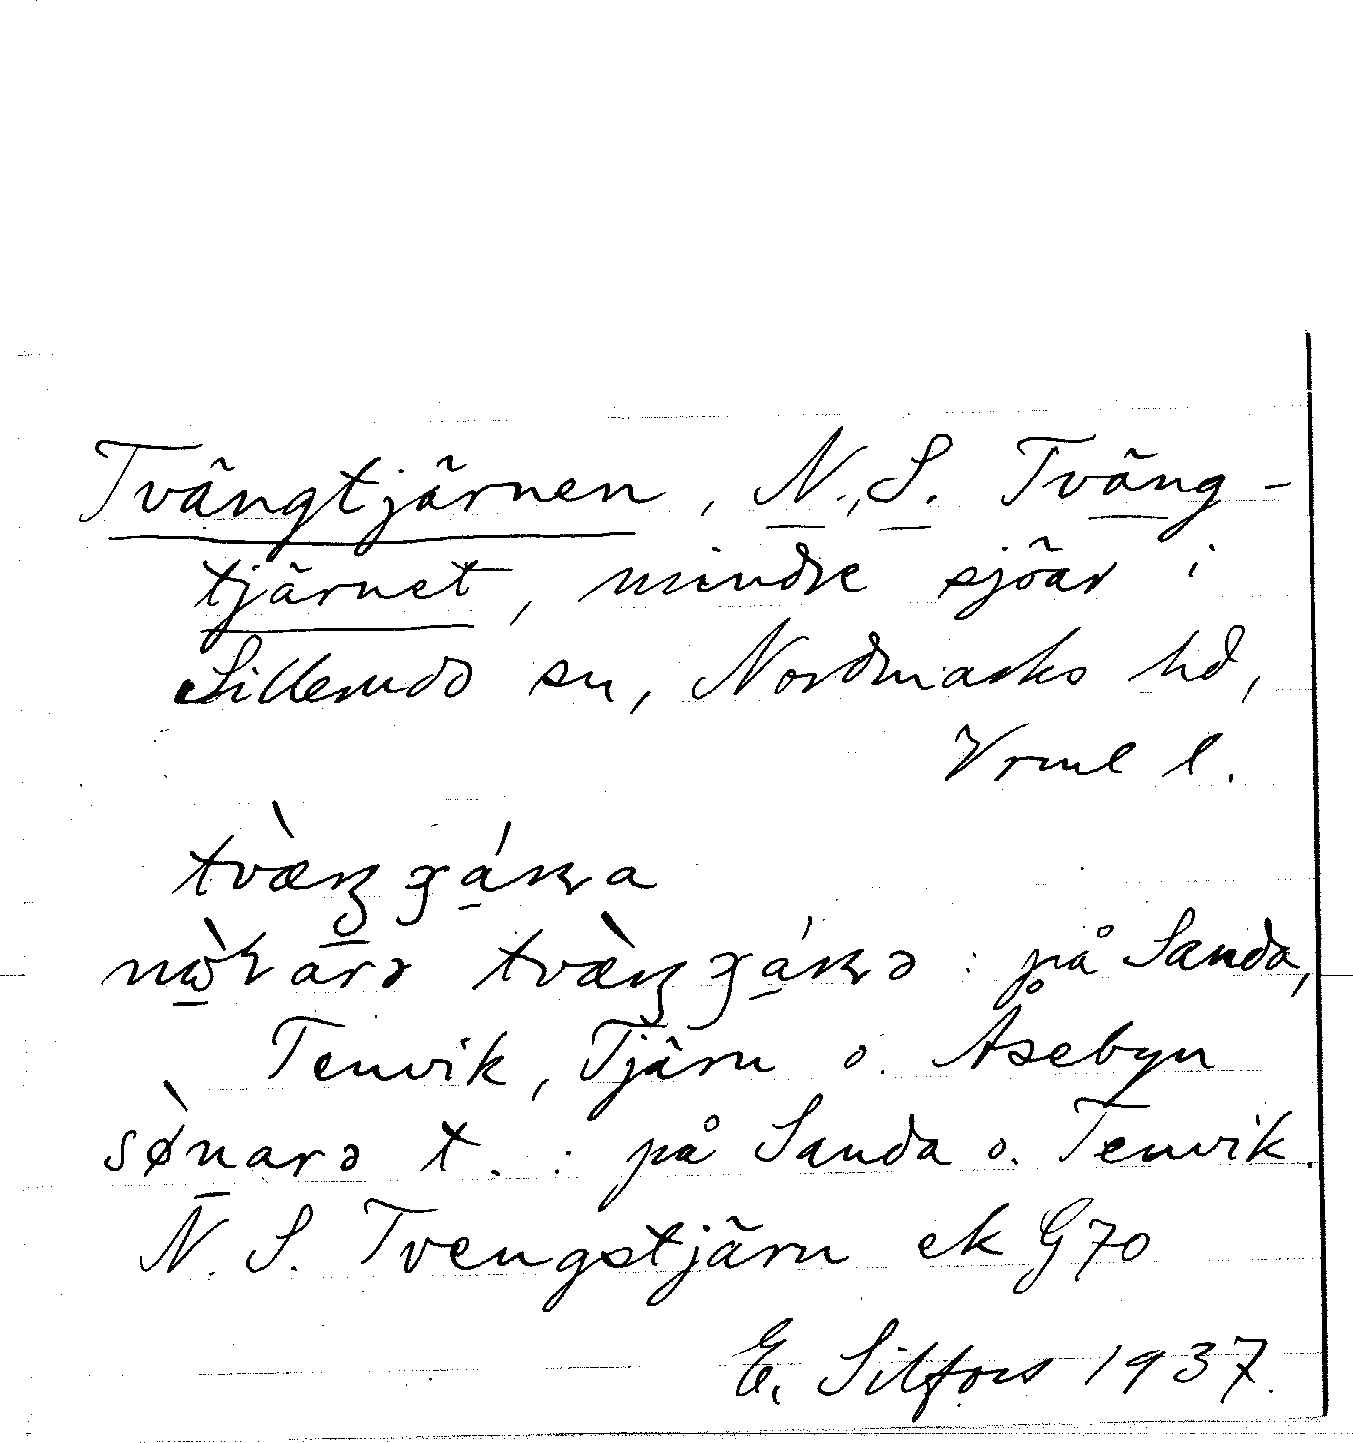 Tvängtjärnen, N., S. Tväng-
tjärnet, mindre sjöar i
Silleruds sn, Nordmarks hd,
Vrml l.
på Sanda,
Tenvik, Tjärn o. Åsebyn
t. : på Sanda o. Tenvik.
N. S. Tvengstjärn ek G70
E. Silfors 1937.